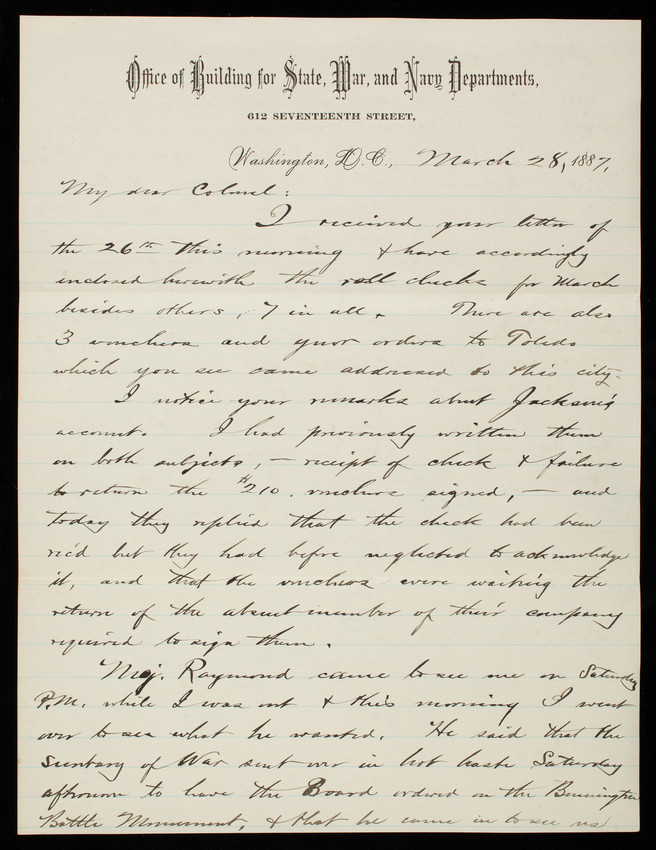 Office of Building for State, War, and Navy Departments,
612 SEVENTEENTH STREET,
Washington, D.C., March 28, 1887,
My dear Colonel:
I received your letter of
the 26th this morning & have accordingly
enclosed herewith the roll checks for March
besides others, 7 in all. There are also
3 vouchers and your orders to Toledo
which you see came addressed to this city.
I notice your remarks about Jackson's
account. I had previously written them
on both subjects, – receipt of check & failure
to return the $210. vouchers signed, – and
today they replied that the check had been
rec'd but they had before neglected to acknowledge
it, and that the vouchers were waiting the
return of the absent member of their company
required to sign them.
Maj. Raymond came to see me on Saturday
P.M. while I was out & this morning I went
over to see what he wanted. He said that the
Secretary of War sent over in hot haste Saturday
afternoon to have the Board ordered on the Bennington
Battle Monument, & that he came in to see us